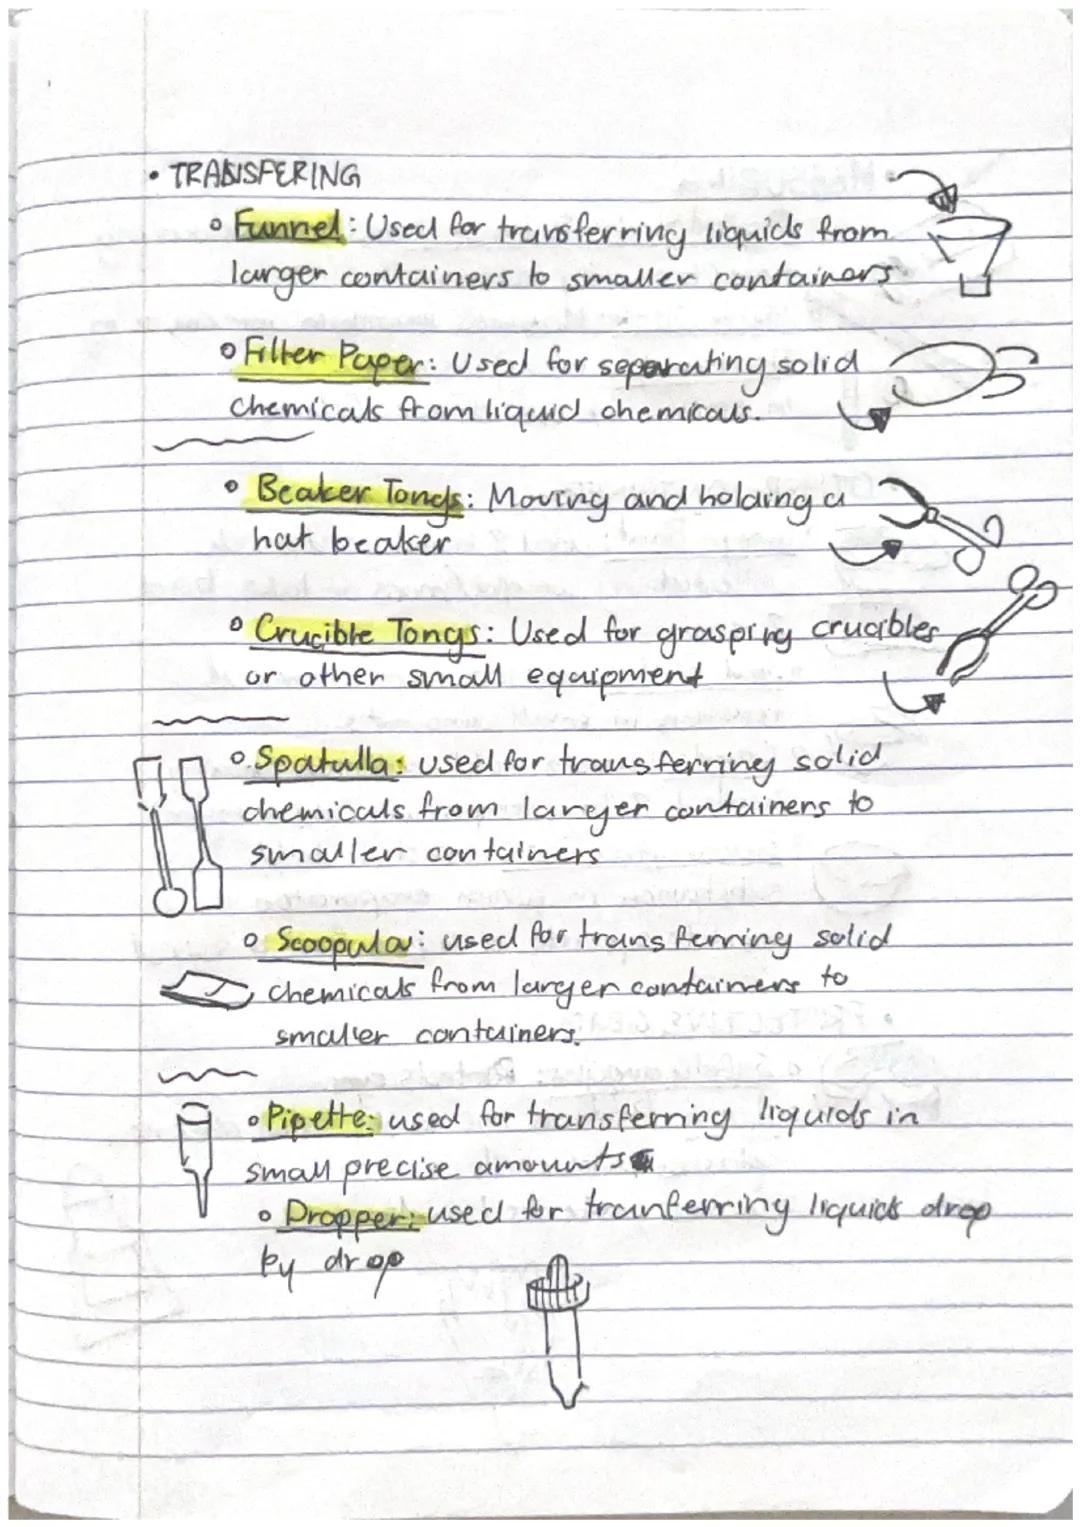 • TRANSFERING
◦ Funnel: Used for transferring liquids from
larger containers to smaller containers
◦ Filter Paper: Used for separating solid
chemicals from liquid chemicals.
◦ Beaker Tongs: Moving and holding a
hot beaker
◦ Crucible Tongs: Used for grasping crucibles
or other small equipment
◦ Spatulla: used for transferring solid
chemicals from larger containers to
smaller containers
◦ Scoopula: used for transferring solid
chemicals from larger containers to
smaller containers.
◦ Pipette: used for transferring liquids in
small precise amounts
◦ Dropper: used for tranferring liquids drop
by drop